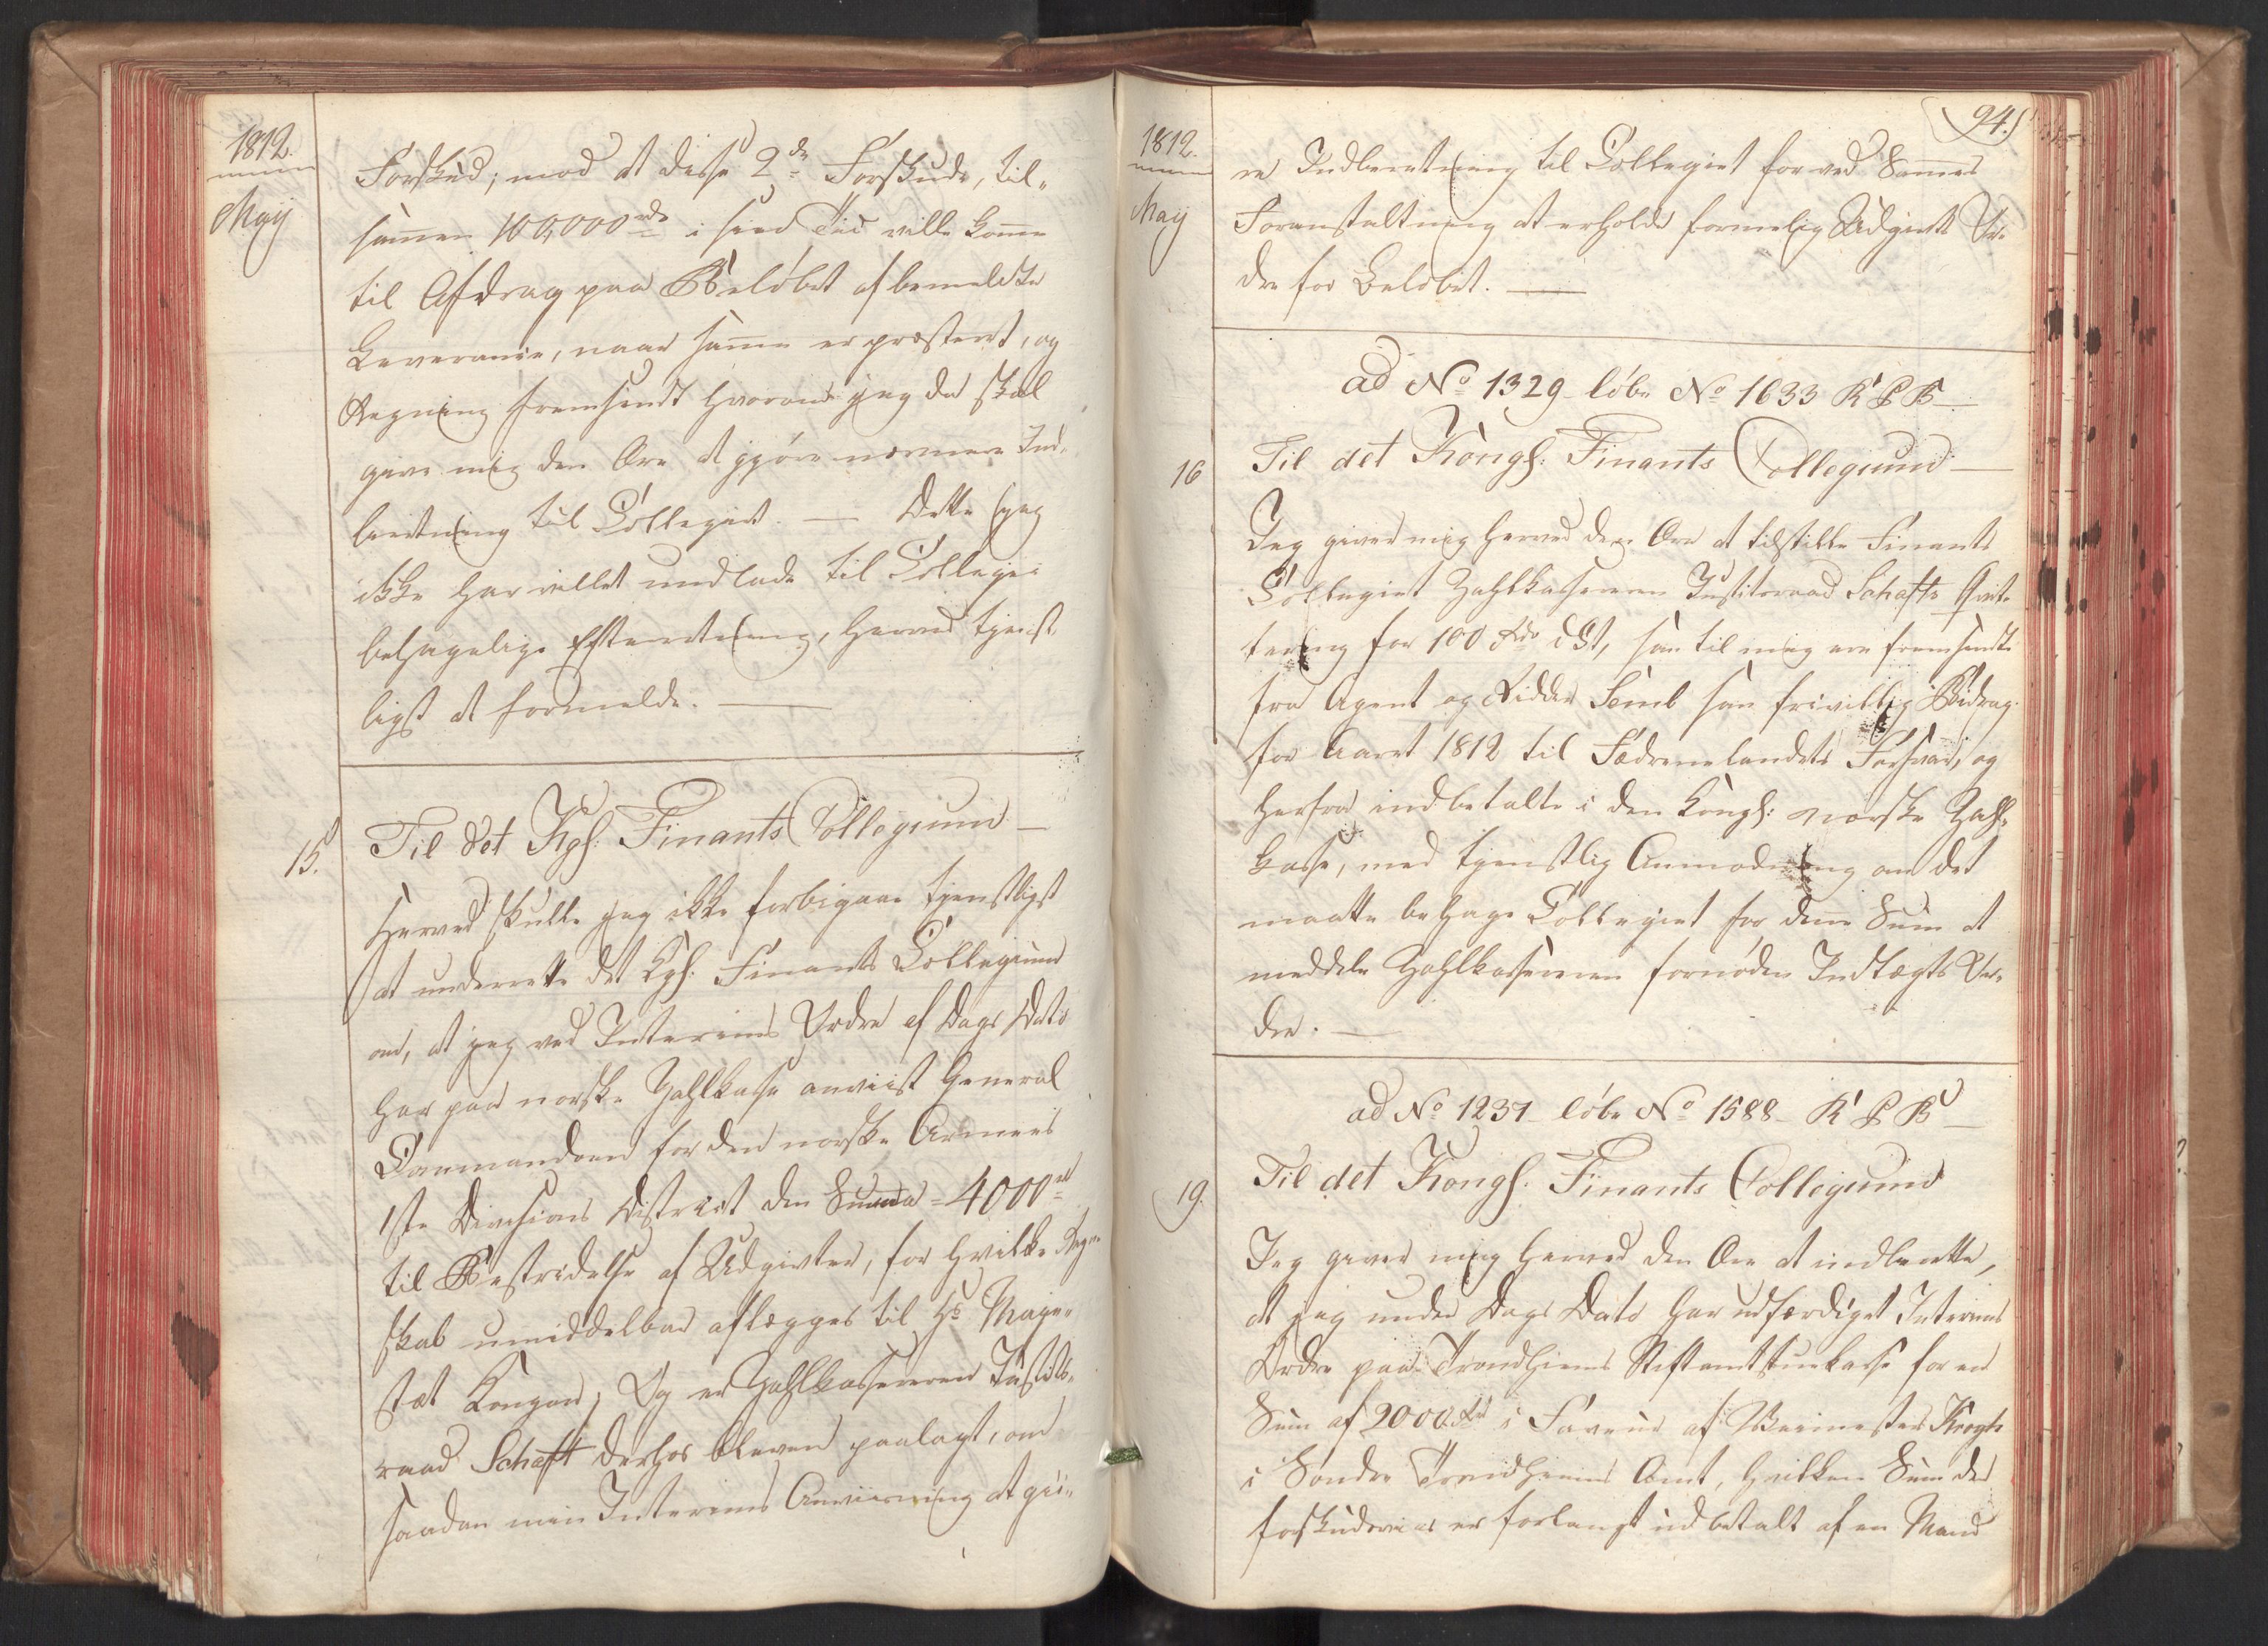 1812.
Maij
Forskud; mod at disse 2de Forskude, til-
samen 100,000 rd i sin Tid ville komme
til Afdrag paa Beløbet af bemeldte
Leverance, naar samme er præstert, og
Regning fremsendt hvorom jeg da skal
give mig den Ære at gjøre nærmere Ind-
beretning til Collegiet. — Dette jeg
ikke har villet undlade til Collegii
behagelige Efterretning, herved tjenst-
ligst at formelde. —
15.
Til det Kgl: Finants Collegium —
Herved skulle jeg ikke forbigaae tjenstligst
at underrette det Kgl. Finants Collegium
om, at jeg ved Interims Ordre af Dags Dato
har paa norske Zahlkasse anviist General
Commandoen for den norske Armees
1ste Divisions District den Summa = 4000 rd
til Bestridelse af Udgivter, for hvilke Regn-
skab umiddelbar aflægges til Hs Maje-
stæt Kongen; Og er Zahlkassereren Justits-
raad Schaft derhos bleven paalagt, om
saadan min Interims Anviisning at gji-
1812.
Maij
94.
re Indberetning til Collegiet for ved Sammes
Foranstaltning at erholde formelig Udgivts Or-
dre for Beløbet. —
ad No 1329 løbe No 1633 K P B —
16
Til det Kongl: Finants Collegium —
Jeg giver mig herved den Ære at tilstille Finants
Collegiet Zahlkassereren Justitsraad Schafts Qvit-
tering for 100 Rdr dCt, som til mig ere fremsendte
fra Agent og Ridder Semb som frivillig Bidrag
for Aaret 1812 til Fædrenelandets Forsvar, og
herfra indbetalte i den Kongl: norske Zahl-
kasse, med tjenstlig Anmodning om det
maatte behage Collegiet for denne Sum at
meddele Zahlkassereren fornøden Indtægts Or-
dre. —
ad No 1237 løbe No 1588 K P B —
19.
Til det Kongl: Finants Collegium
Jeg giver mig herved den Ære at indberette,
at jeg under Dags Dato har udfærdiget Interims
Ordre paa Trondhiems Stiftamtstuekasse for en
Sum af 2000 Rd i Faveur af Veimester Krogh
i Søndre Trondhiems Amt, hvilken Sum der
forskudsviis er forlangt udbetalt af en Mand